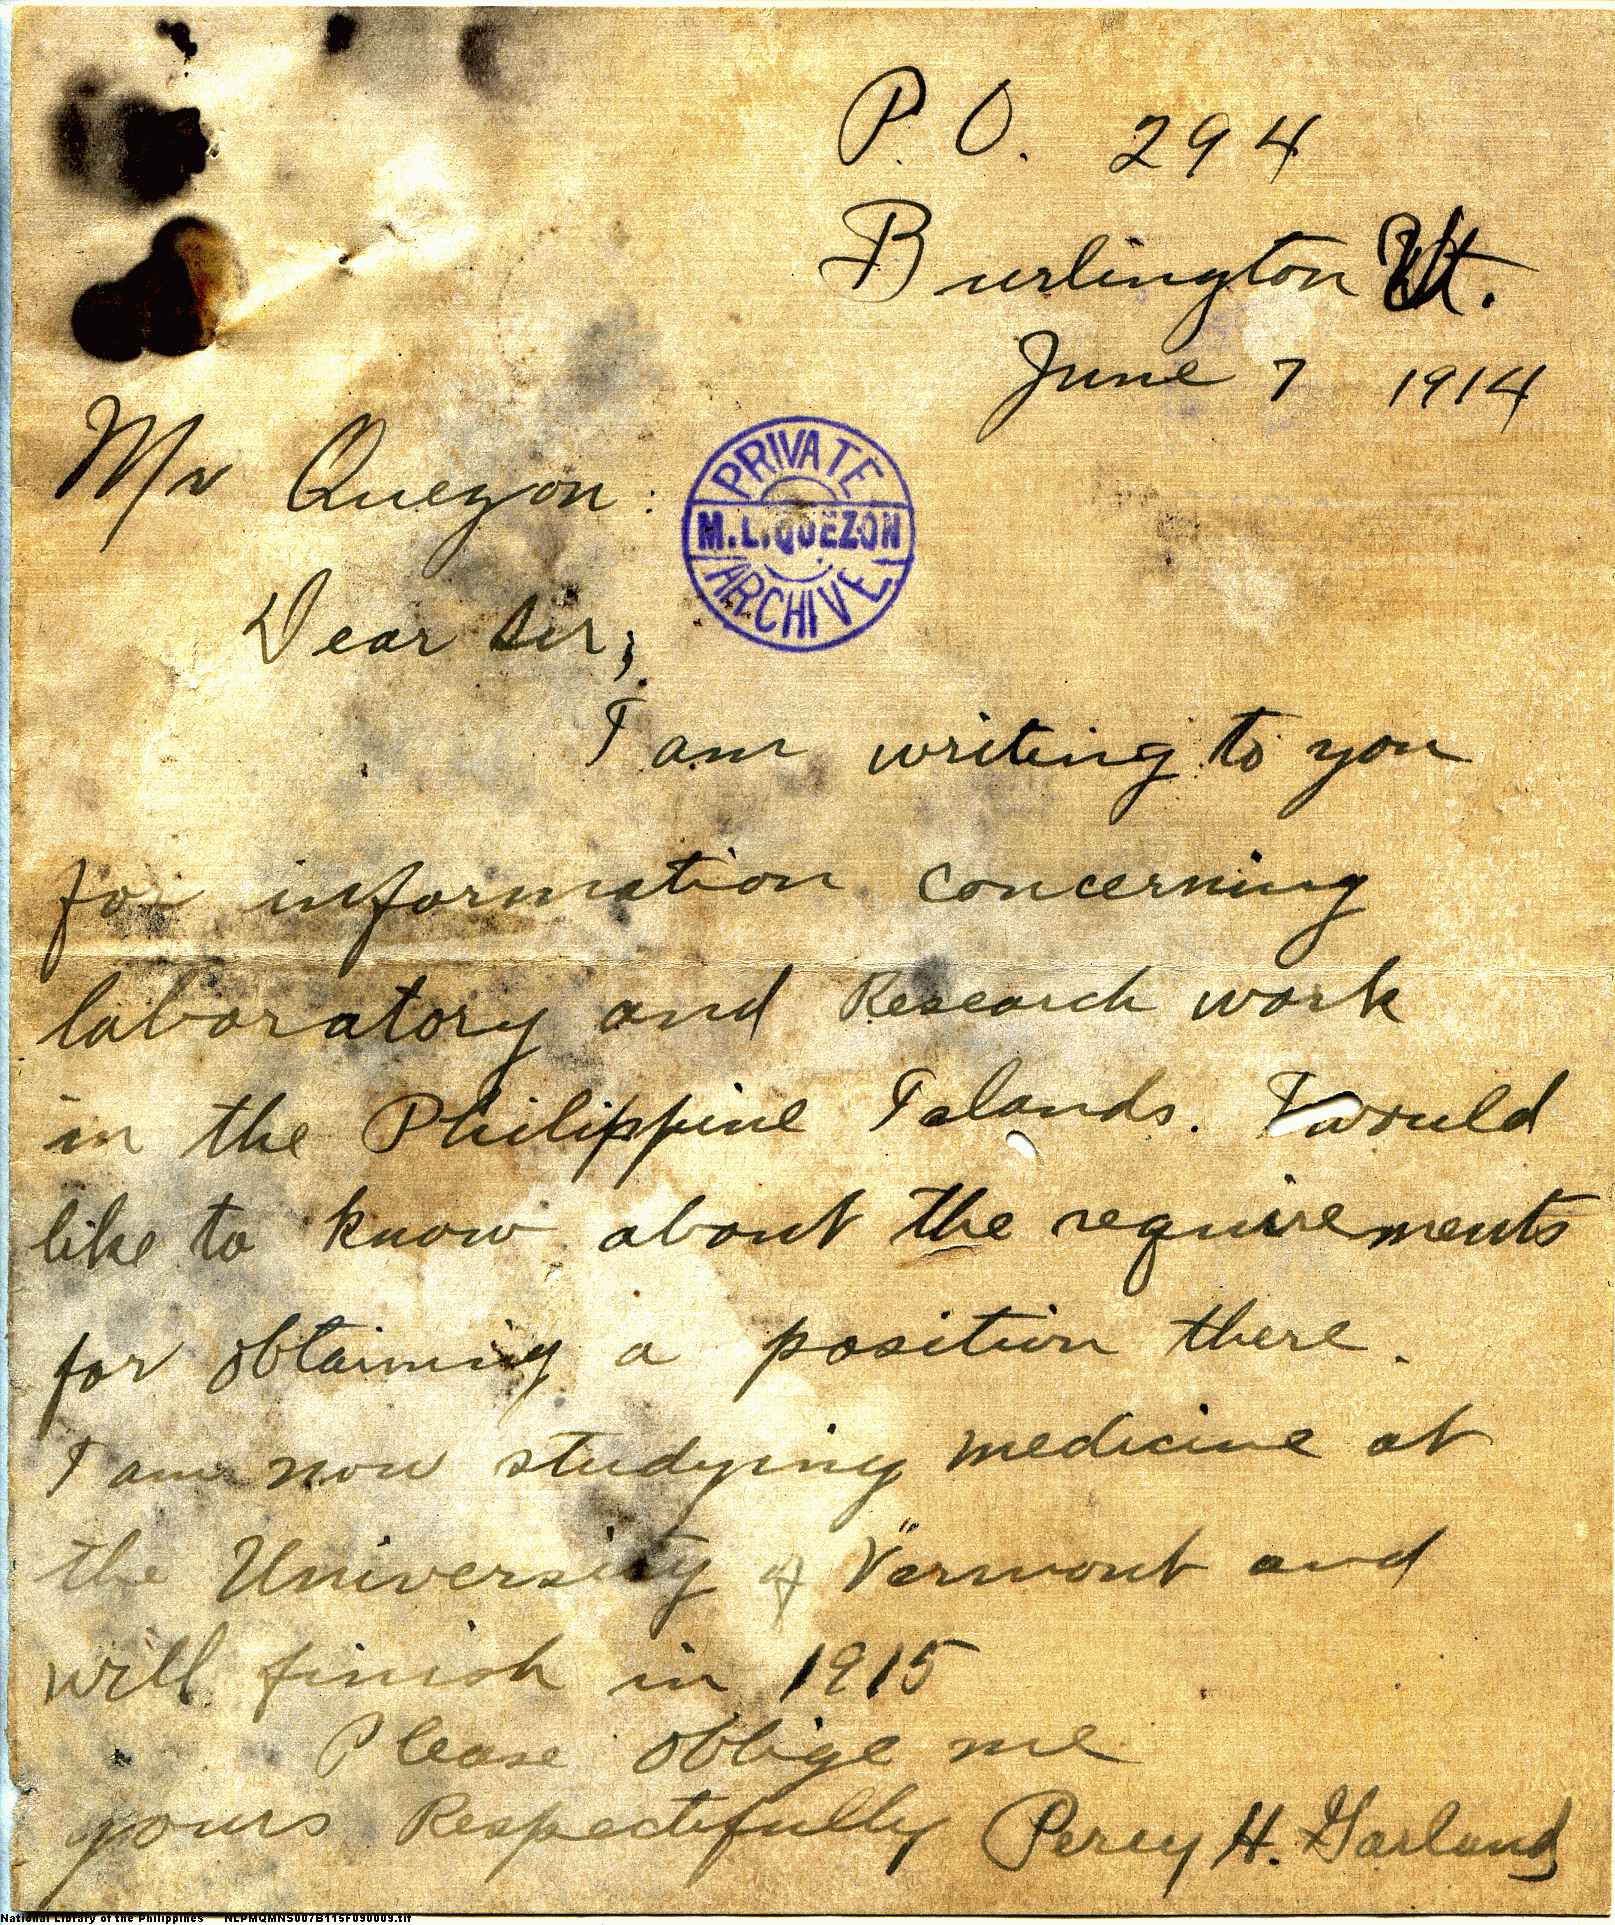 P. O. 294
Burlington Vt.
June 7 1914
Mr Quezon:
PRIVATE
M. L. QUEZON
ARCHIVE
Dear Sir;
I am writing to you
for information concerning
laboratory and Research work
in the Philippine Islands. I would
like to know about the requirements
for obtaining a position there.
I am now studying medicine at
the University of Vermont and
will finish in 1915
Please oblige me
yours Respectifully Percy H. Garland
National Library of the Philippines NLPMQMNS007B115F090009.tif